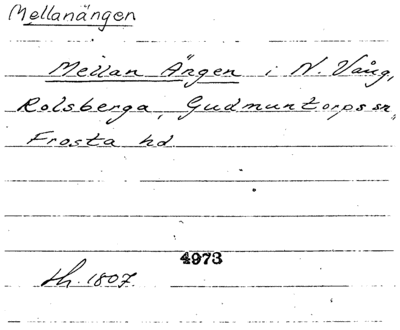 Mellanängen
Mellan Ängen i N. Vång,
Rolsberga, Gudmuntorps sn,
Frosta hd
4973
Lh. 1807.